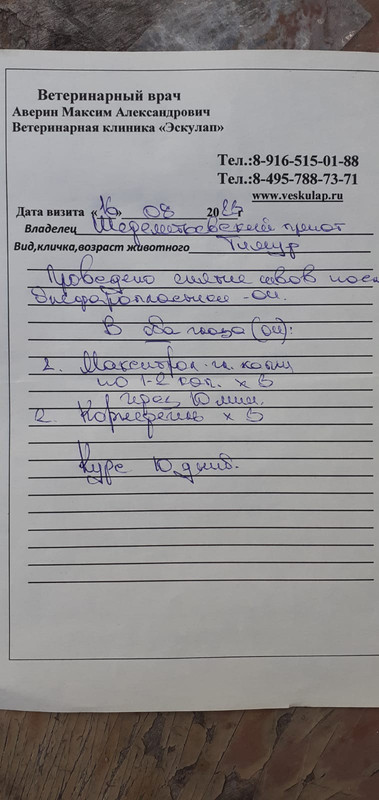 Ветеринарный врач
Аверин Максим Александрович
Ветеринарная клиника «Эскулап»
Тел.:8-916-515-01-88
Тел.:8-495-788-73-71
www.veskulap.ru
Дата визита «16» 08 2023г
Владелец Шереметьевский приют
Вид,кличка,возраст животного Тимур
Проведено снятие швов посл
блефаропластики - OU.
В два глаза (OU):
1. Макситрол гл. капли
по 1-2 кап. х 3
через 10 мин.
2. Корнерегель х 3
Курс 10 дней.